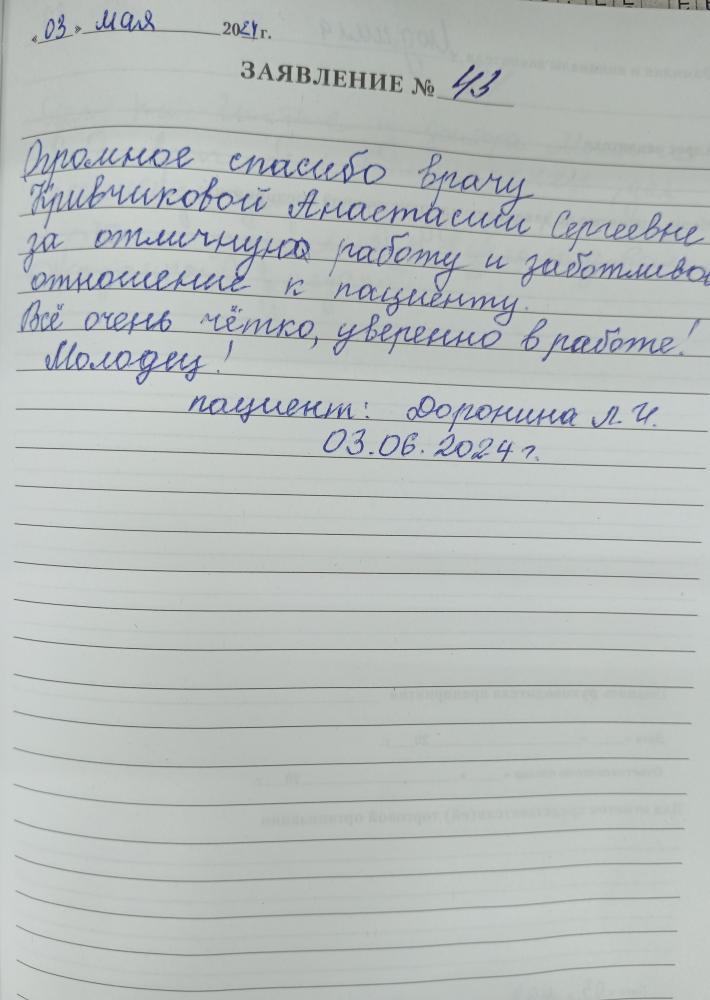 «03» мая 2024 г.
ЗАЯВЛЕНИЕ № 43
Огромное спасибо врачу
Кривчиковой Анастасии Сергеевне
за отличную работу и заботливое
отношение к пациенту.
Всё очень чётко, уверенно в работе!
Молодец!
пациент: Доронина Л.И.
03.06.2024 г.